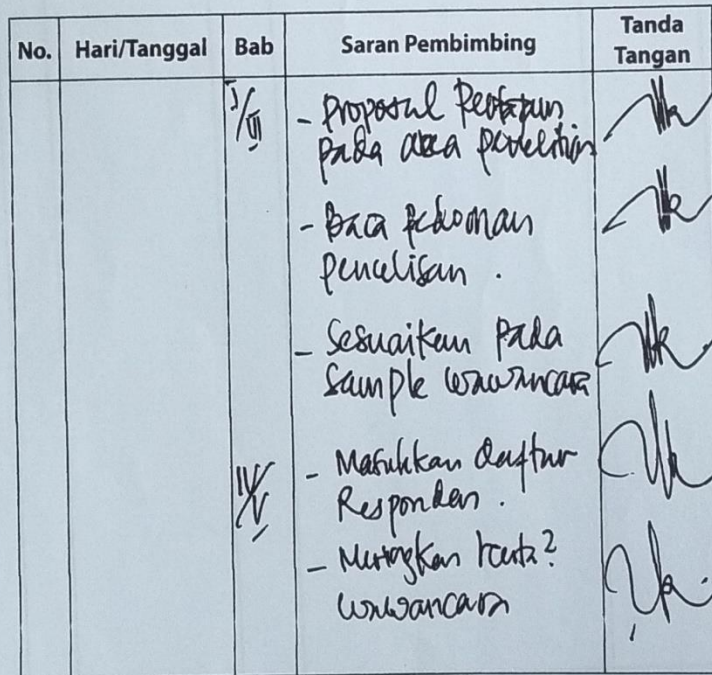 No. Hari/Tanggal Bab Saran Pembimbing Tanda Tangan
I/III
- Proposal
pada area penelitian
- Baca pedoman
penulisan .
- Sesuaikan pada
Sample wawancara
IV/V
- Masukkan daftar
Responden .
- Miringkan kata2
wawancara